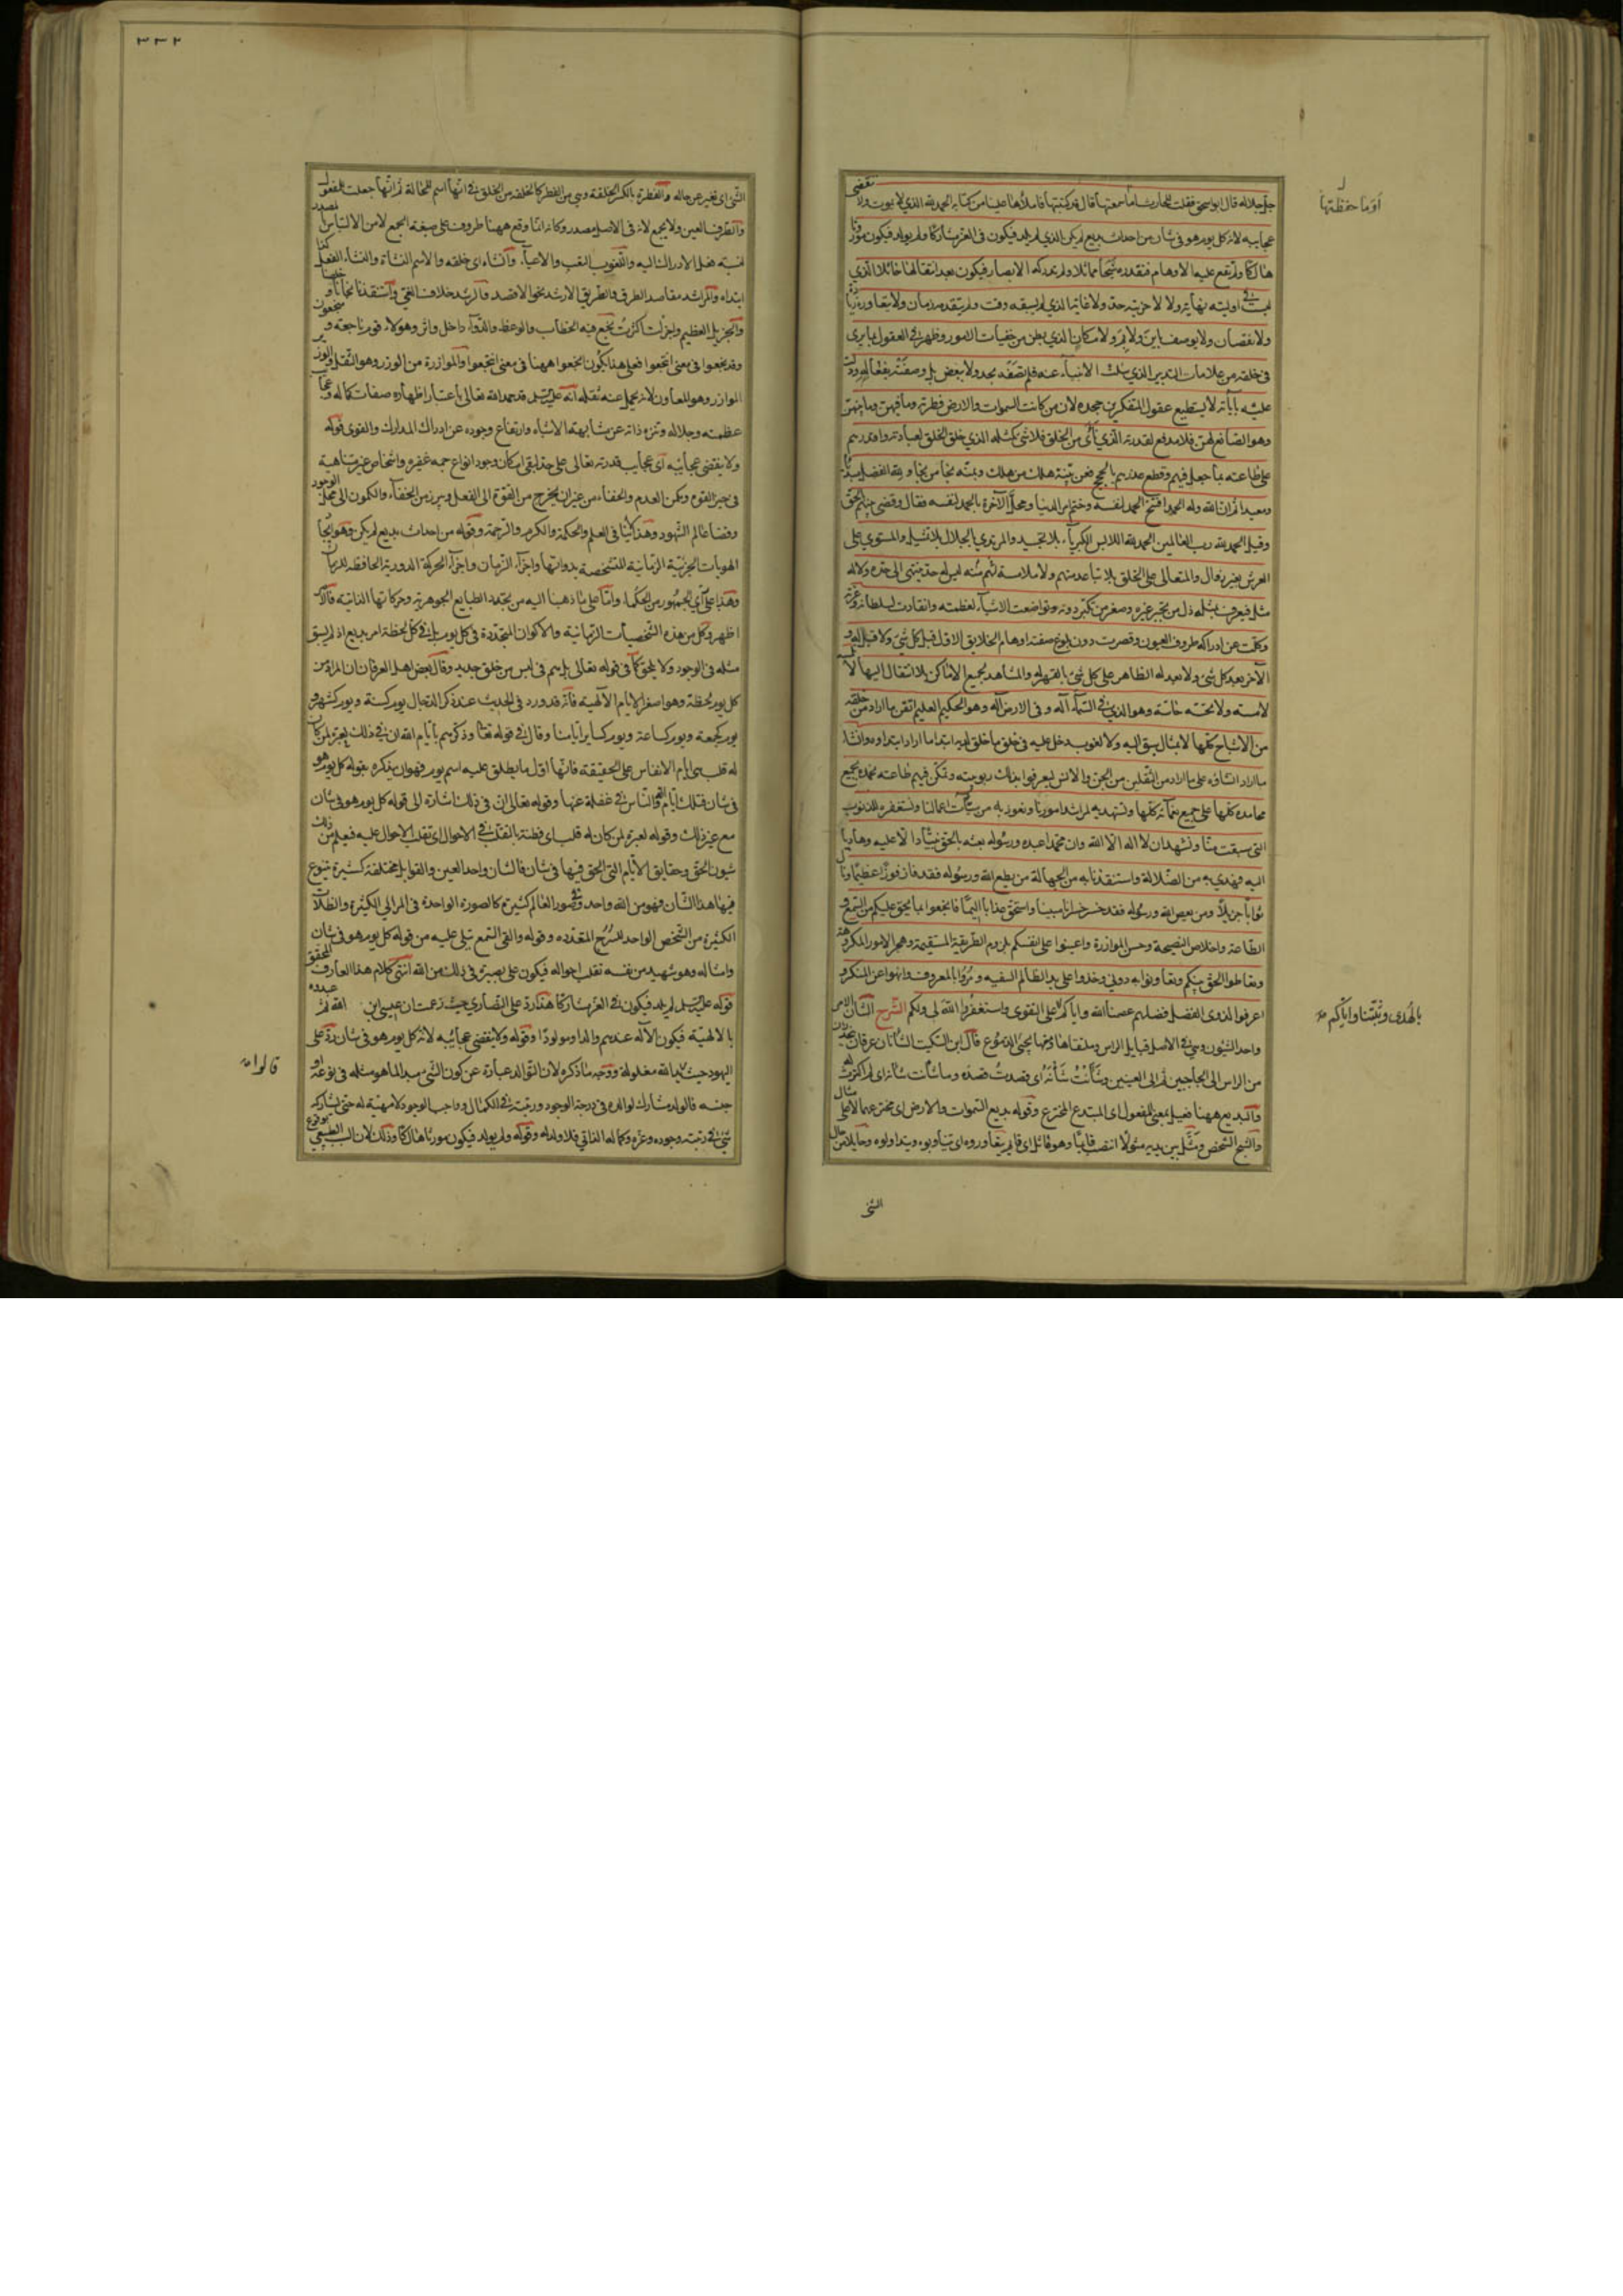 جل جلاله قال ابو اسحق فقلت للحارث اما حفظتها قال قد كتبتها فاملاها علينا من كتابه الحمد لله الذي لا يموت ولا تنقضى
عجايبه لانه كل يوم هو في شان من احداث بديع لم يكن الذي لم يلد فيكون في العز مشاركا ولم يولد فيكون موروثا
هالكا ولم تقع عليه الاوهام فتقدره شبحا ماثلا ولم تدركه الابصار فيكون بعد انتقالها حائلا الذي
ليست في اوليته نهاية ولا لاخريته حد ولا غاية الذي لم يسبقه وقت ولم يتقدمه زمان ولا يتعاوره زيادة
ولا نقصان ولا يوصف باين ولا بم ولا مكان الذي بطن من خفيات الامور وظهر في العقول بما يرى
في خلقه من علامات التدبير الذي سئلت الانبياء عنه فلم تصفه بحد ولا ببعض بل وصفته بفعاله ودلت
عليه باياته لا يستطيع عقول المتفكرين جحده لان من كانت السموات والارض فطرته وما فيهن وما بينهن
وهو الصانع لهن فلا مدفع لقدرته الذي ناى من الخلق فلا شئ كمثله الذي خلق الخلق لعبادته واقدرهم
على طاعته بما جعل فيهم وقطع عذرهم بالحجج فعن بينة هلك من هلك وبمنه نجا من نجا ولله الفضل مبدئا
ومعيدا ثم ان الله وله الحمد افتتح الحمد لنفسه وختم امر الدنيا ومحل الآخرة بالحمد لنفسه فقال وقضى بينهم بالحق
وقيل الحمد لله رب العالمين الحمد لله اللابس الكبرياء بلا تجسيد والمرتدي بالجلال بلا تمثيل والمستوي على
العرش بغير زوال والمتعالى على الخلق بلا تباعد منهم ولا ملامسة منه لهم ليس له حد ينتهى الى حده ولا له
مثل فيعرف بمثله ذل من تجبر غيره وصغر من تكبر دونه وتواضعت الاشياء لعظمته وانقادت لسلطانه وعزته
وكلت عن ادراكه طروف العيون وقصرت دون بلوغ صفته اوهام الخلايق الاول قبل كل شئ ولا قبل له و
الآخر بعد كل شئ ولا بعد له الظاهر على كل شئ بالقهر له والمشاهد لجميع الاماكن بلا انتقال اليها لا
لامسة ولا تحسه حاسة وهو الذي في السماء آله وفى الارض آله وهو الحكيم العليم اتقن ما اراد من خلقه
من الاشباح كلها لا بمثال سبق اليه ولا لغوب دخل عليه في خلق ما خلق لديه ابتدا ما اراد ابتداءه وانشا
ما اراد انشاءه على ما اراد من الثقلين من الجن والانس ليعرفوا بذلك ربوبيته وتمكن فيهم طاعته نحمده بجميع
محامده كلها على جميع نعمائه كلها ونستهديه لمراشد امورنا ونعوذ به من سيئات اعمالنا ونستغفره للذنوب
التي سبقت منا ونشهد ان لا اله الا الله وان محمدا عبده ورسوله بعثه بالحق نبيا دالا عليه وهاديا
اليه فهدى به من الضلالة واستنقذنا به من الجهالة من يطع الله ورسوله فقد فاز فوزا عظيما ونال
ثوابا جزيلا ومن يعص الله ورسوله فقد خسر خسرانا مبينا واستحق عذابا اليما فانجعوا بما يحق عليكم من السمع و
الطاعة واخلاص النصيحة وحسن الموازرة واعينوا على انفسكم بلزوم الطريقة المستقيمة وهجر الامور المكروهة
وتعاطوا الحق بينكم وتعاونوا به دوني وخذوا على يد الظالم السفيه ومروا بالمعروف وانهوا عن المنكر و
اعرفوا لذوى الفضل فضلهم عصمنا الله واياكم على التقوى واستغفروا الله لى ولكم الشرح الشان الامر
واحد الشئون وهي في الاصل قبايل الراس وملتقاها ومنها يجئ الدموع قال ابن السكيت الشانان عرقان ينحدران
من الراس الى الحاجبين ثم الى العينين وشأنت شأنه اى قصدت قصده وما شأنت شأنه اى لم اكترث له
والبديع ههنا فعيل بمعنى المفعول اى المبتدع المخترع وقوله بديع السموات والارض اى مخترعهما لا على مثال
والشبح الشخص ومثل بين يديه مثولا انتصب قايما وهو ماثل اى قايم
الشئ
او ما حفظتها
بالهدى وثبتنا واياكم
٣٣٢
الشئ اى تغير عن حاله والفطرة بالكسر الخلقة وهي من الفطر كالخلقة من الخلق في انها اسم للحالة ثم انها جعلت للمفعول
والطرف العين ولا يجمع لانه في الاصل مصدر وكانه انما وقع ههنا طروف على صيغة الجمع لامن الالتباس مصدر
واللغوب التعب والاعياء وانشاء اى خلقه والاسم النشاة والنشاء
ابتداء والمراشد مقاصد الطرق والطريق الارشد نحو الاقصد والرشد خلاف الغى واستنقذنا نجانا و
والجزيل العظيم واجزلت اكثرت نجع فيه الخطاب والوعظ والدواء دخل واثر وهؤلاء قوم ناجعة و
وقد نجعوا في معنى انتجعوا فعلى هذا يكون انجعوا ههنا في معنى انتجعوا والموازرة من الوزر وهو الثقل والوزير
الموازر وهو المعاون لانه يحمل عنه ثقله انه عليه السلام قد حمد الله تعالى باعتبار اظهاره صفات كماله و
عظمته وجلاله وتنزه ذاته عن مشابهة الاشياء وارتفاع وجوده عن ادراك المدارك والقوى قوله
ولا ينقضى عجائبه اى عجايب قدرته تعالى على حد لبقى امكان وجود انواع جمة غفيرة واشخاص غير متناهية
في حيز القوه ومكمن العدم والخفاء من غير ان يخرج من القوة الى الفعل ويبرز من الخفاء والكمون الى مجلى الوجود
وفضا عالم الشهود وهذا ينافى العلم والحكمة والكرم والرحمة وقوله من احداث بديع لم يكن
الهويات الجزئية الزمانية المتشخصة بذواتها واجزاء الزمان واجزاء الحركة الدورية الحافظة للزمان
وهذا على راي الجمهور من الحكماء واما على ما ذهبنا اليه من تجدد الطبايع الجوهرية وحركاتها الذاتية فالامر
اظهر وكل من هذه الشخصيات الزمانية والاكوان المتجددة في كل يوم بل في كل لحظة امر بديع اذ لم يسبق
مثله في الوجود ولا يلحق كما في قوله تعالى بل هم في لبس من خلق جديد وقال بعض اهل العرفان ان المراد من
كل يوم لحظة وهو اصغر الايام الالهية فانه قد ورد في الحديث عند ذكر الدجال يوم كسنة ويوم كشهر و
يوم كجمعة ويوم كساعة ويوم كساير ايامنا وقال في قوله تعالى وذكرهم بايام الله ان في ذلك لعبرة لمن كان
له قلب هى ايام الانفاس على الحقيقة فانها اقل ما يطلق عليه اسم يوم فهو ان يذكره بقوله كل يوم هو
في شان فتلك ايام الله والناس في غفلة عنها وقوله تعالى ان في ذلك اشارة الى قوله كل يوم هو في شان
مع غير ذلك وقوله لعبرة لمن كان له قلب اى فطنة بالتقلب في الاحوال اى تقلب الاحوال عليه فيعلم من ذلك
شئون الحق وحقايق الايام التي الحق فيها في شان فالشان واحد العين والقوابل مختلفة كثيرة يتنوع
فيها هذا الشان فهو من الله واحد وفي صور العالم كثيرة كالصورة الواحدة في المرائي الكثيرة والظلالات
الكثيرة من الشخص الواحد للسرج المتعددة وقوله والقى السمع تتلى عليه من قوله كل يوم هو في شان
وامثاله وهو شهيد من نفسه تقلب احواله فيكون على بصيرة في ذلك من الله انتهى كلام هذا العارف المحقق
قوله عليه السلام لم يلد فيكون في العز مشاركا هذا رد على النصارى حيث زعمت ان عيسى ابن الله ثم عبدوه
بالالهية فيكون الآله عندهم والدا ومولودا وقوله ولا ينقضى عجائبه لانه كل يوم هو في شان رد على
اليهود حيث يد الله مغلولة ووجه ما ذكره لان التوالد عبارة عن كون الشئ مبدا لما هو مثله في نوعه او
جنسه فالولد مشارك لوالده في درجة الوجود ورتبته في الكمال وواجب الوجود لا مهية له حتى يشاركه
شئ في رتبة وجوده وعزه وكماله الذاتي فلا ولد له وقوله ولم يولد فيكون موروثا هالكا وذلك لان السبب الطبيعي
قالوا